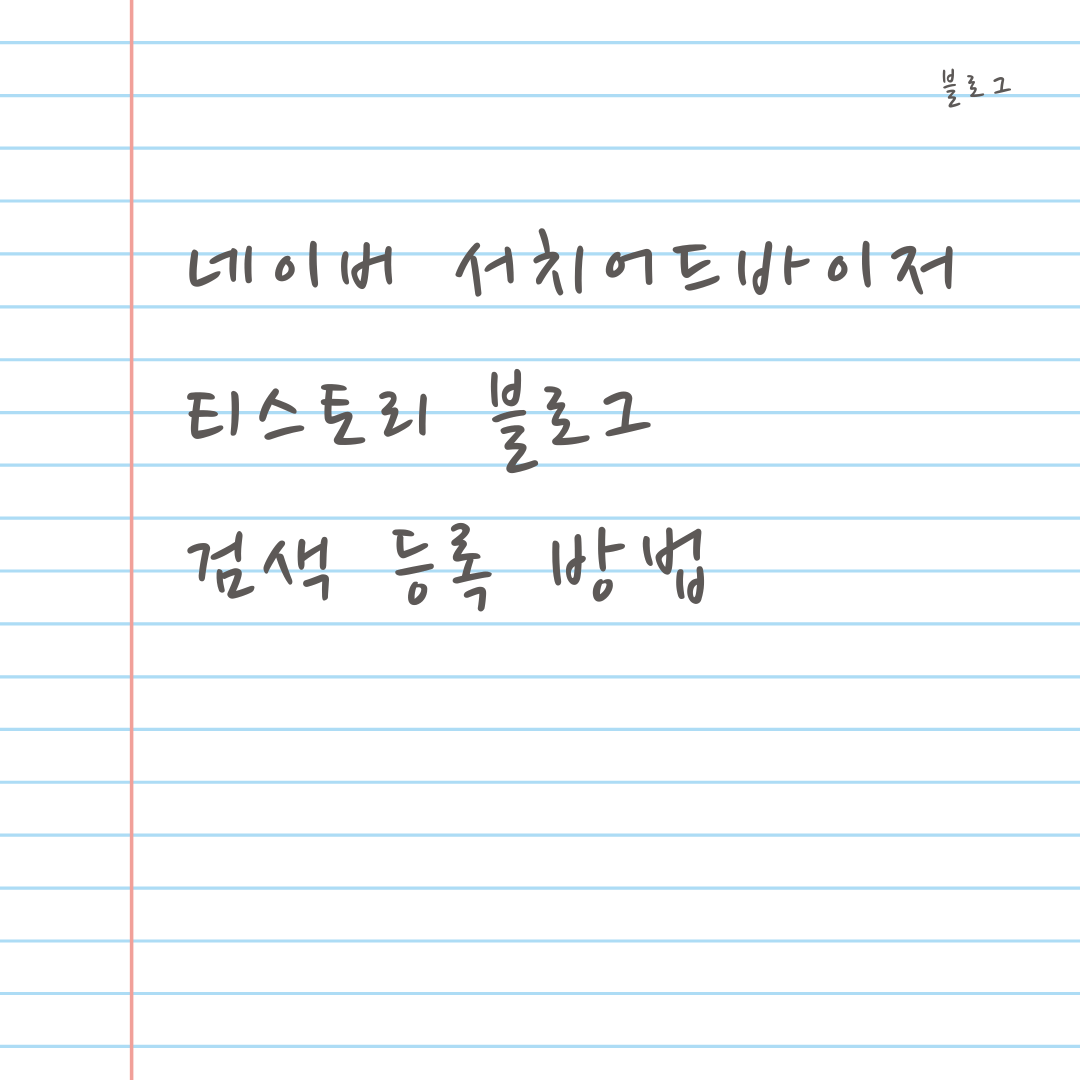 블로그
네이버 서치어드바이저
티스토리 블로그
검색 등록 방법